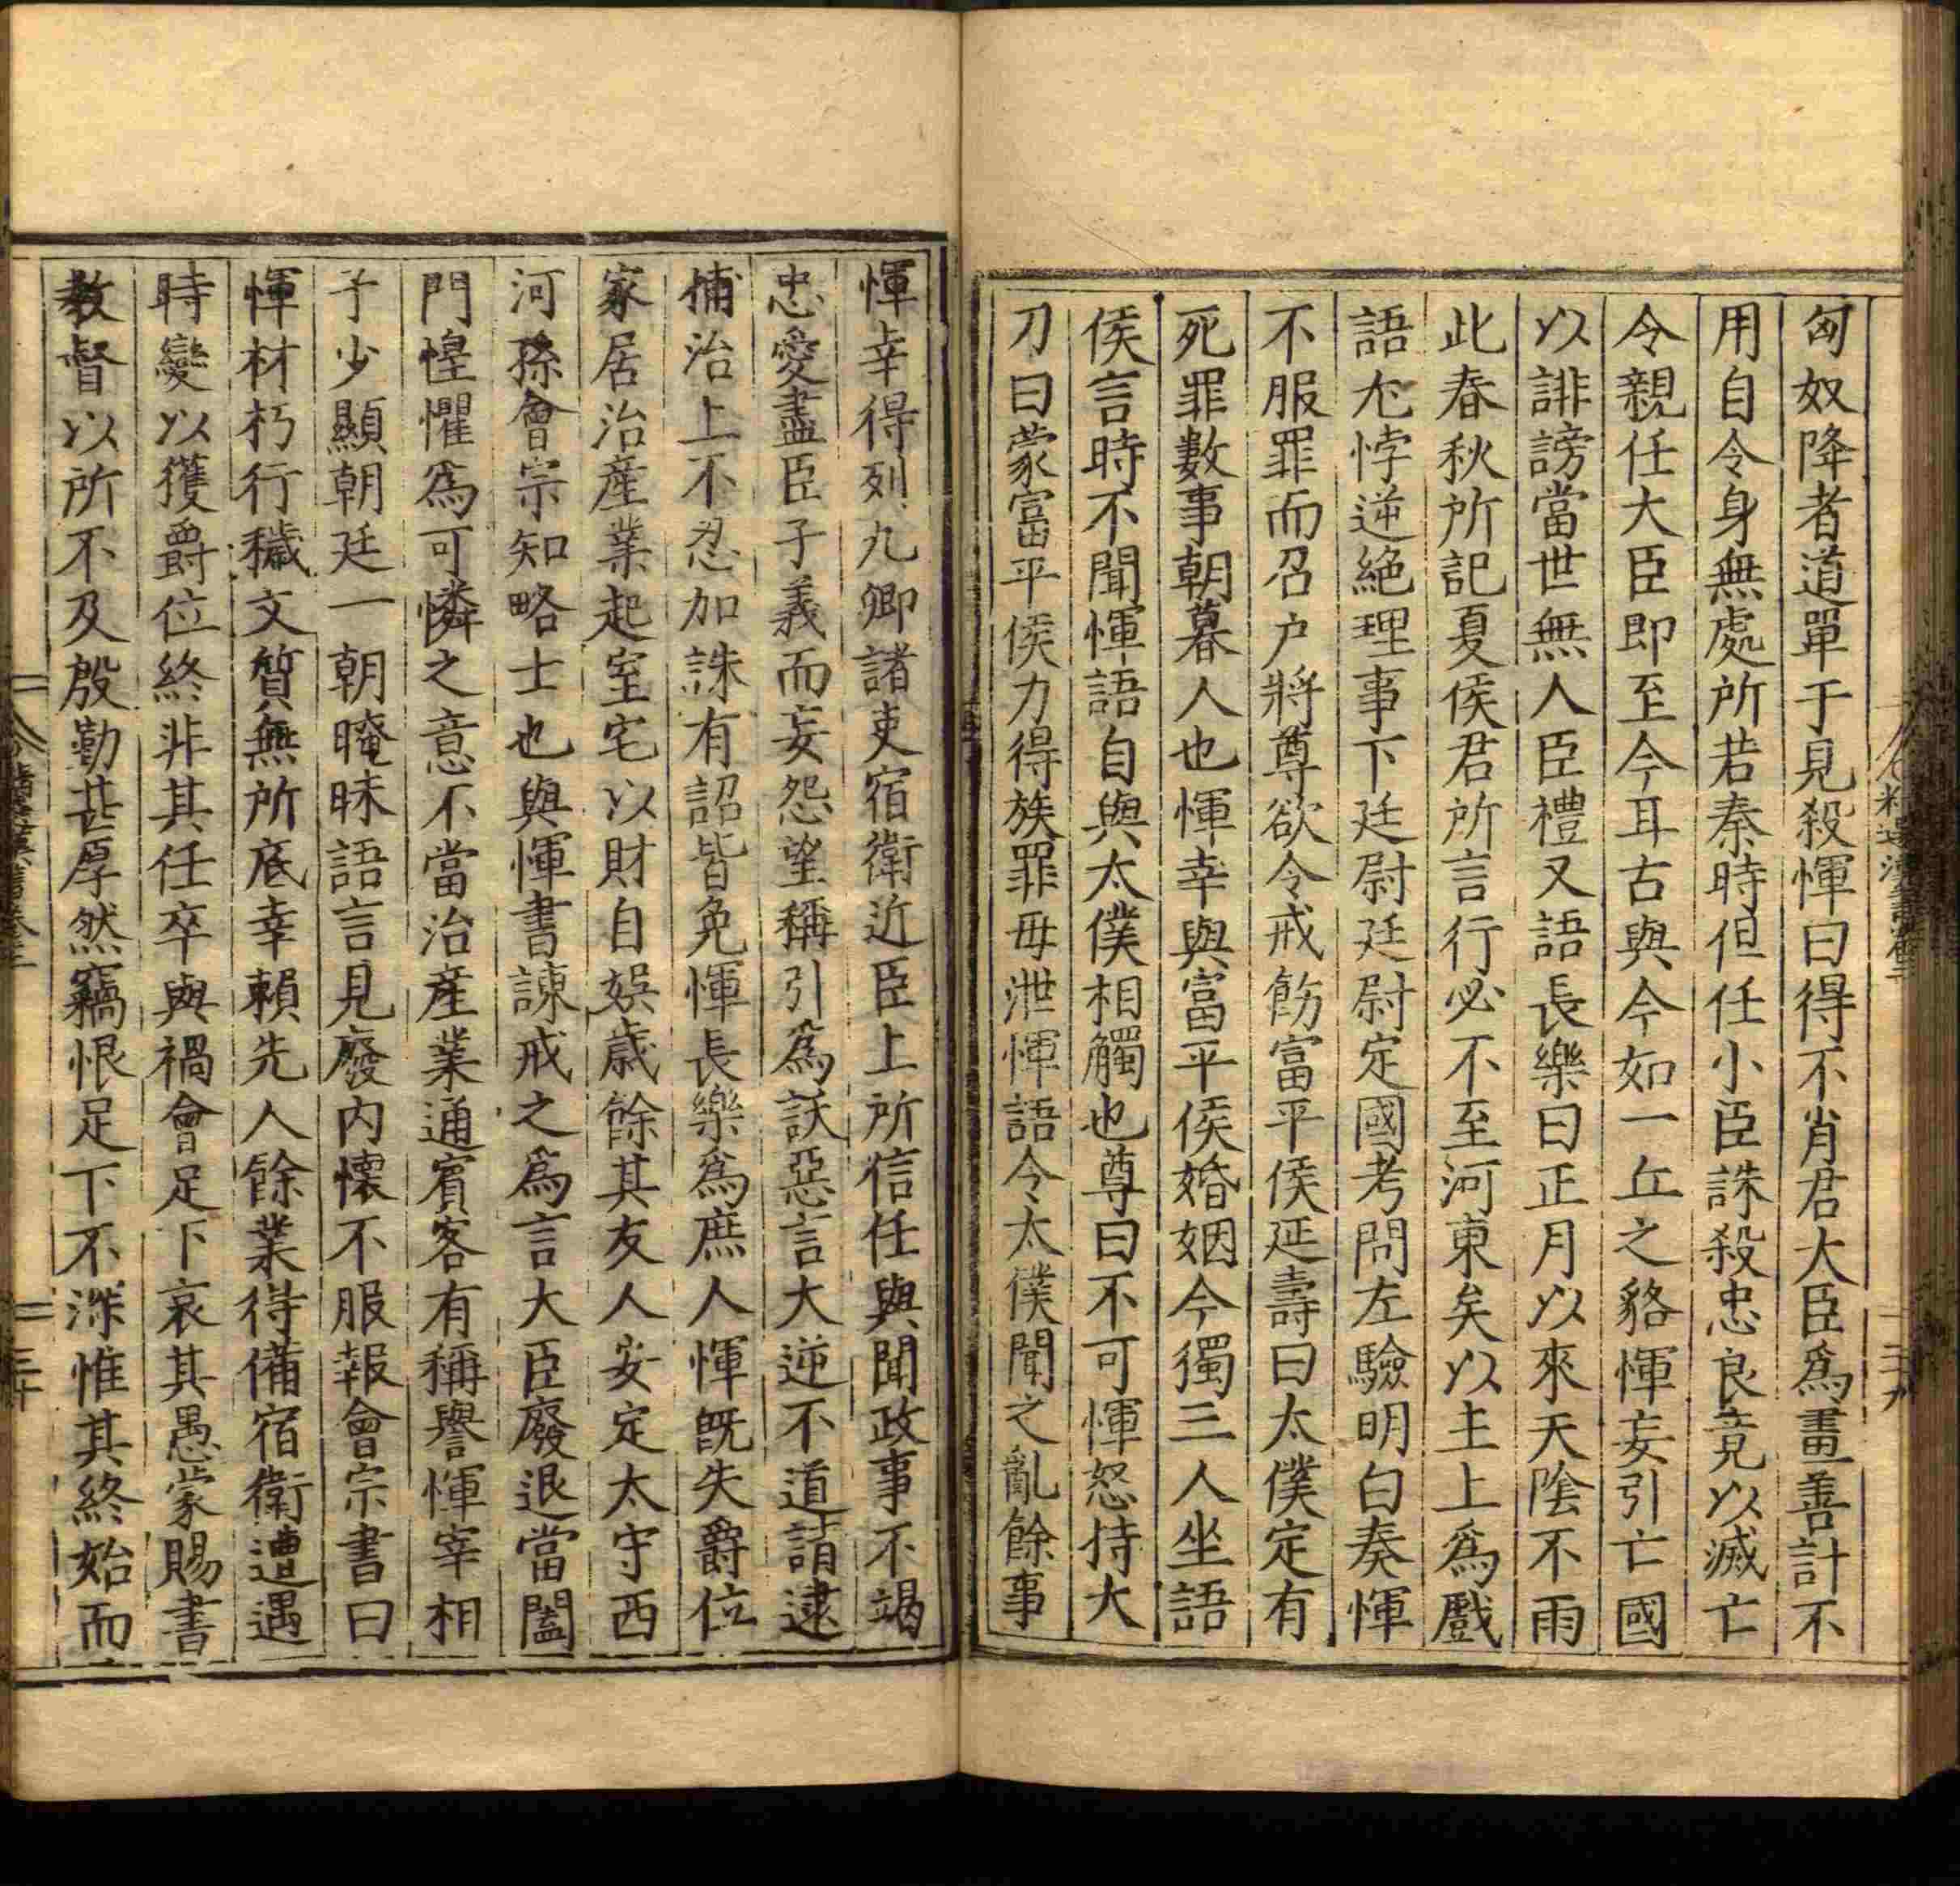 匈奴降者道單于見殺惲曰得不肖君大臣爲畫善計不
用自令身無處所若秦時但任小臣誅殺忠良竟以滅亡
令親任大臣即至今耳古與今如一丘之貉惲妄引亡國
以誹謗當世無人臣禮又語長樂曰正月以來天陰不雨
此春秋所記夏侯君所言行必不至河東矣以主上爲戲
語尤悖逆絕理事下廷尉廷尉定國考問左驗明白奏惲
不服罪而召户將尊欲令戒飭富平侯延壽曰太僕定有
死罪數事朝暮人也惲幸與富平侯婚姻今獨三人坐語
侯言時不聞惲語自與太僕相觸也尊曰不可惲怒持大
刀曰蒙富平侯力得族罪毋泄惲語令太僕聞之亂餘事
惲幸得列九卿諸吏宿衛近臣上所信任與聞政事不竭
忠愛盡臣子義而妄怨望稱引爲訞惡言大逆不道請逮
捕治上不忍加誅有詔皆免惲長樂爲庶人惲既失爵位
家居治產業起室宅以財自娱歲餘其友人安定太守西
河孫會宗知略士也與惲書諫戒之爲言大臣廢退當闔
門惶懼爲可憐之意不當治產業通賓客有稱譽惲宰相
子少顯朝廷一朝晻昧語言見廢內懷不服報會宗書曰
惲材朽行穢文質無所底幸賴先人餘業得備宿衛遭遇
時變以獲爵位終非其任卒與禍會足下哀其愚蒙賜書
教督以所不及殷勤甚厚然竊恨足下不深惟其終始而
三十